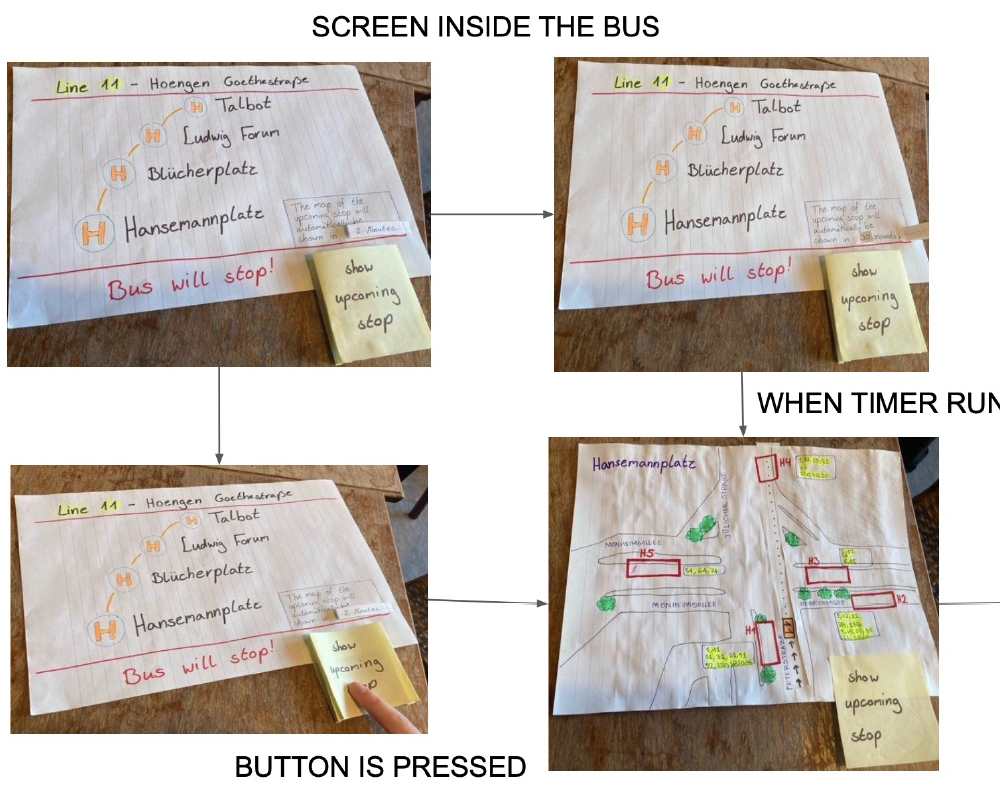 SCREEN INSIDE THE BUS
Line 11 - Hoengen Goethestraße
H Talbot
H Ludwig Forum
H Blücherplatz
H Hansemannplatz
The map of the
upcoming stop will
automatically be
shown in 2 Minutes
Bus will stop!
show
upcoming
stop
Line 11 - Hoengen Goethestraße
H Talbot
H Ludwig Forum
H Blücherplatz
H Hansemannplatz
The map of the
upcoming stop will
automatically be
shown in 30 seconds
Bus will stop!
show
upcoming
stop
WHEN TIMER RUN
Line 11 - Hoengen Goethestraße
H Talbot
H Ludwig Forum
H Blücherplatz
H Hansemannplatz
The map of the
upcoming stop will
automatically be
shown in 2 Minutes
Bus will stop!
show
upcoming
BUTTON IS PRESSED
Hansemannplatz
H4
JÜLICHER
MONHEIMSALLEE
H5
H3
MONHEIMSALLEE
H2
H1
PETERSTRAßE
show
upcoming
stop